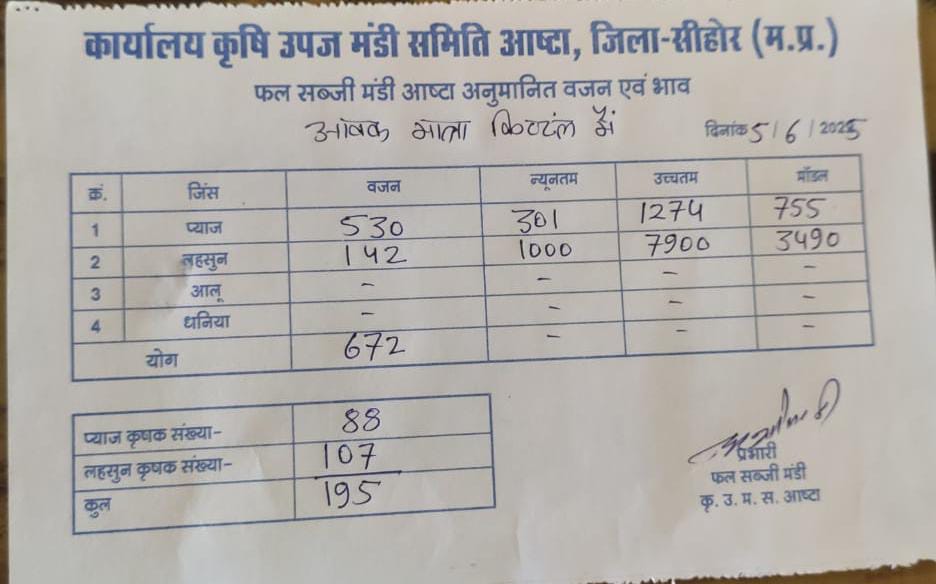 कार्यालय कृषि उपज मंडी समिति आष्टा, जिला-सीहोर (म.प्र.)
फल सब्जी मंडी आष्टा अनुमानित वजन एवं भाव
आवक मात्रा क्विंटल में दिनांक 5/6/2025
क्रं. जिंस वजन न्यूनतम उच्चतम मॉडल
1 प्याज 530 301 1274 755
2 लहसुन 142 1000 7900 3490
3 आलू - - - -
4 धनिया - - - -
योग 672 - - -
प्याज कृषक संख्या- 88
लहसुन कृषक संख्या- 107
कुल 195
प्रभारी
फल सब्जी मंडी
कृ. उ. म. स. आष्टा